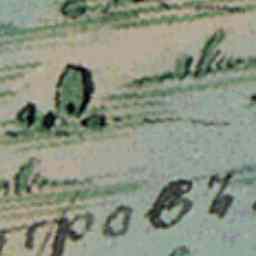 тровъ